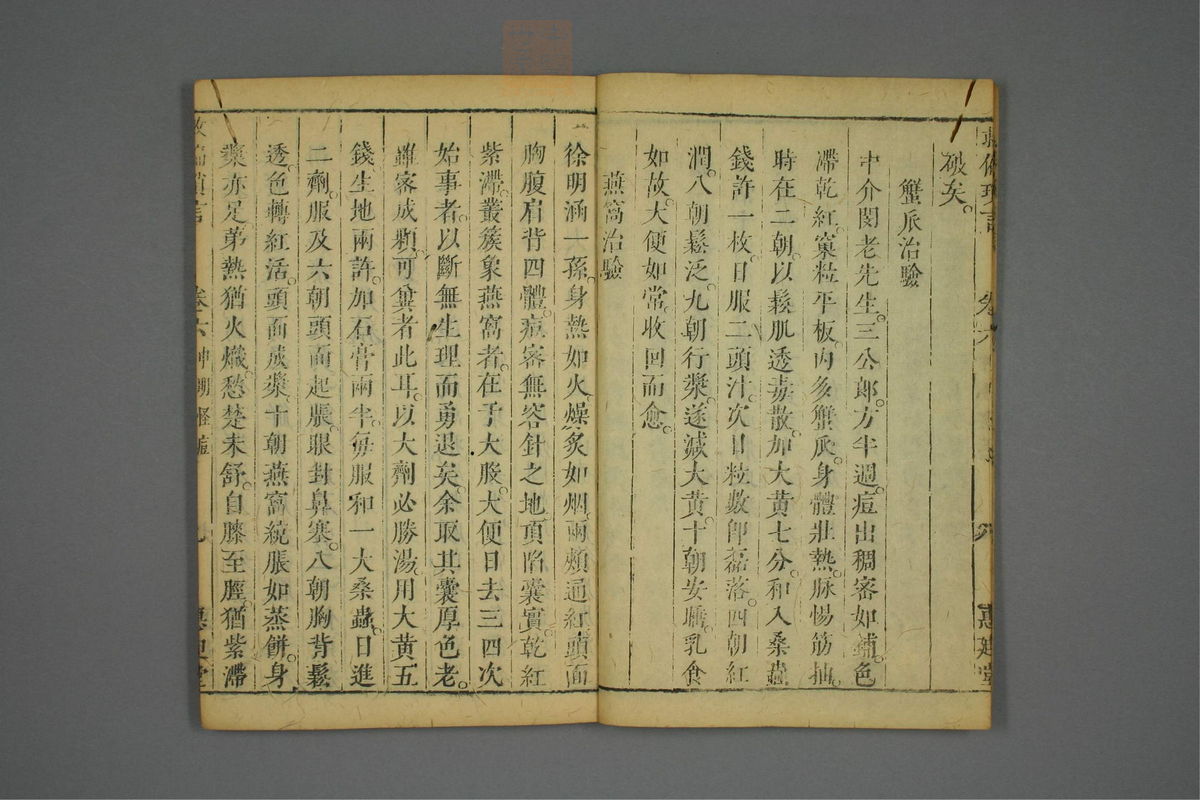 破矣。
蟹爪治驗
中介閔老先生。三公郎。方半週。痘出稠密如鋪。色
滯乾紅。窠粒平板。內多蟹爪。身體壯熱。脉惕筋抽。
時在二朝。以鬆肌透毒散。加大黃七分。和入桑蟲
錢許一枚。日服二頭汁。次日粒數即磊落。四朝紅
潤。八朝鬆泛。九朝行漿。遂減大黃。十朝安膳。乳食
如故。大便如常。收回而愈。
燕窩治驗
徐明涵一孫。身熱如火。燥炙如烟。兩頰通紅。頭面
胸腹肩背四體。痘密無容針之地。頂陷囊實。乾紅
紫滯。叢簇象燕窩者。在于大股。大便日去三四次
始事者。以斷無生理而勇退矣。余取其囊厚色老。
雖密成顆。可冀者此耳。以大劑必勝湯。用大黃五
錢生地兩許。加石膏兩半。每服和一大桑蟲。日進
二劑。服及六朝頭面起脹。眼封鼻塞。八朝胸背鬆
透。色轉紅活。頭面成漿。十朝燕窩統脹如蒸餅。身
漿亦足。苐熱猶火熾。愁楚未舒。自膝至脛。猶紫滯
卷六